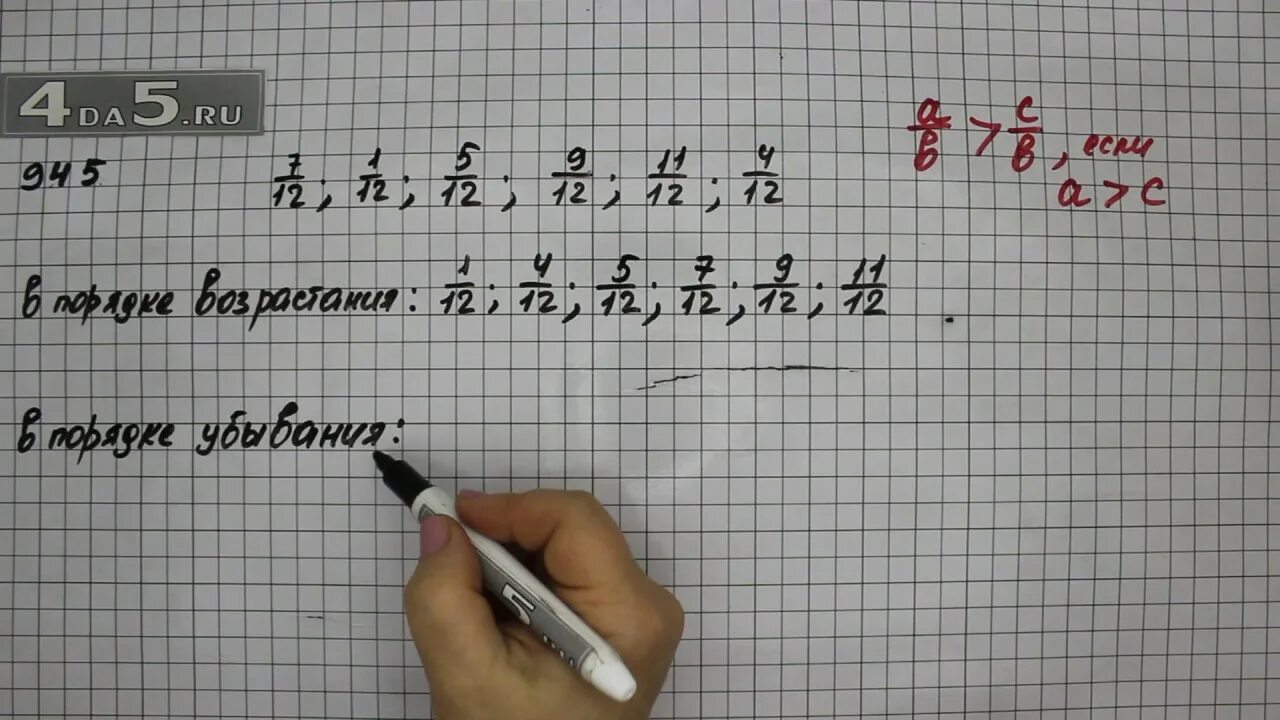 4DA5.RU
945 7/12; 1/12; 5/12; 9/12; 11/12; 4/12
a/b > c/b, если
a > c
в порядке возрастания: 1/12; 4/12; 5/12; 7/12; 9/12; 11/12
в порядке убывания:
5